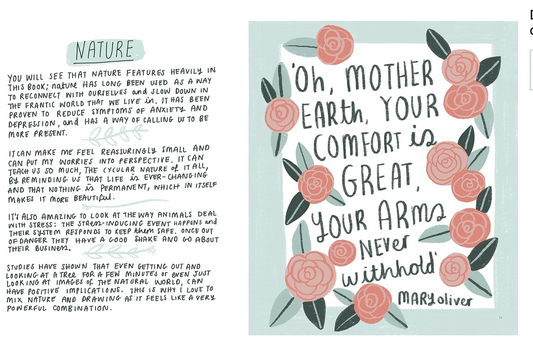 NATURE
YOU WILL SEE THAT NATURE FEATURES HEAVILY IN
THIS BOOK; nature HAS LONG BEEN USED AS A WAY
TO RECONNECT WITH OURSELVES and SLOW DOWN IN
THE FRANTIC WORLD THAT WE LIVE in. IT HAS BEEN
PROVEN TO REDUCE SYMPTOMS OF ANXIETY AND
DEPRESSION, and HAS A WAY OF CALLING US TO BE
MORE PRESENT.
IT CAN MAKE ME FEEL REASSURINGLY SMALL AND
CAN PUT MY WORRIES INTO PERSPECTIVE. IT CAN
TEACH US SO MUCH, THE CYCULAR NATURE of IT ALL,
BY REMINDING US THAT LIFE is EVER-CHANGING
AND THAT NOTHING is PERMANENT, WHICH IN ITSELF
MAKES IT MORE BEAUTIFUL.
IT'S ALSO AMAZING TO LOOK AT THE WAY ANIMALS DEAL
WITH STRESS: THE STRESS-INDUCING EVENT HAPPENS and
THEIR SYSTEM RESPONDS TO KEEP them SAFE. ONCE OUT
OF DANGER THEY HAVE A GOOD SHAKE AND GO ABOUT
THEIR BUSINESS.
STUDIES HAVE SHOWN THAT EVEN GETTING OUT AND
LOOKING AT A TREE FOR A FEW MINUTES or EVEN JUST
LOOKING AT IMAGES OF THE NATURAL WORLD, CAN
HAVE POSITIVE IMPLICATIONS. THIS IS WHY I LOVE TO
MIX NATURE AND DRAWING AS IT FEELS LIKE A VERY
POWERFUL COMBINATION.
'Oh, MOTHER
EARTH, YOUR
COMFORT is
GREAT,
YOUR ARMS
NEVER
withhold'
MARY oliver